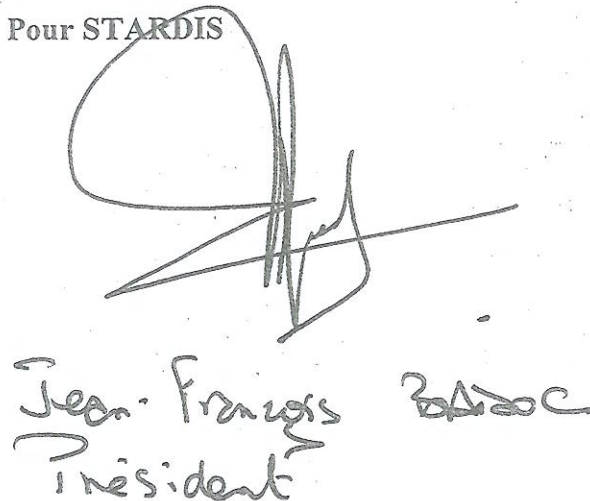 Pour STARDIS
Jean-François
Président